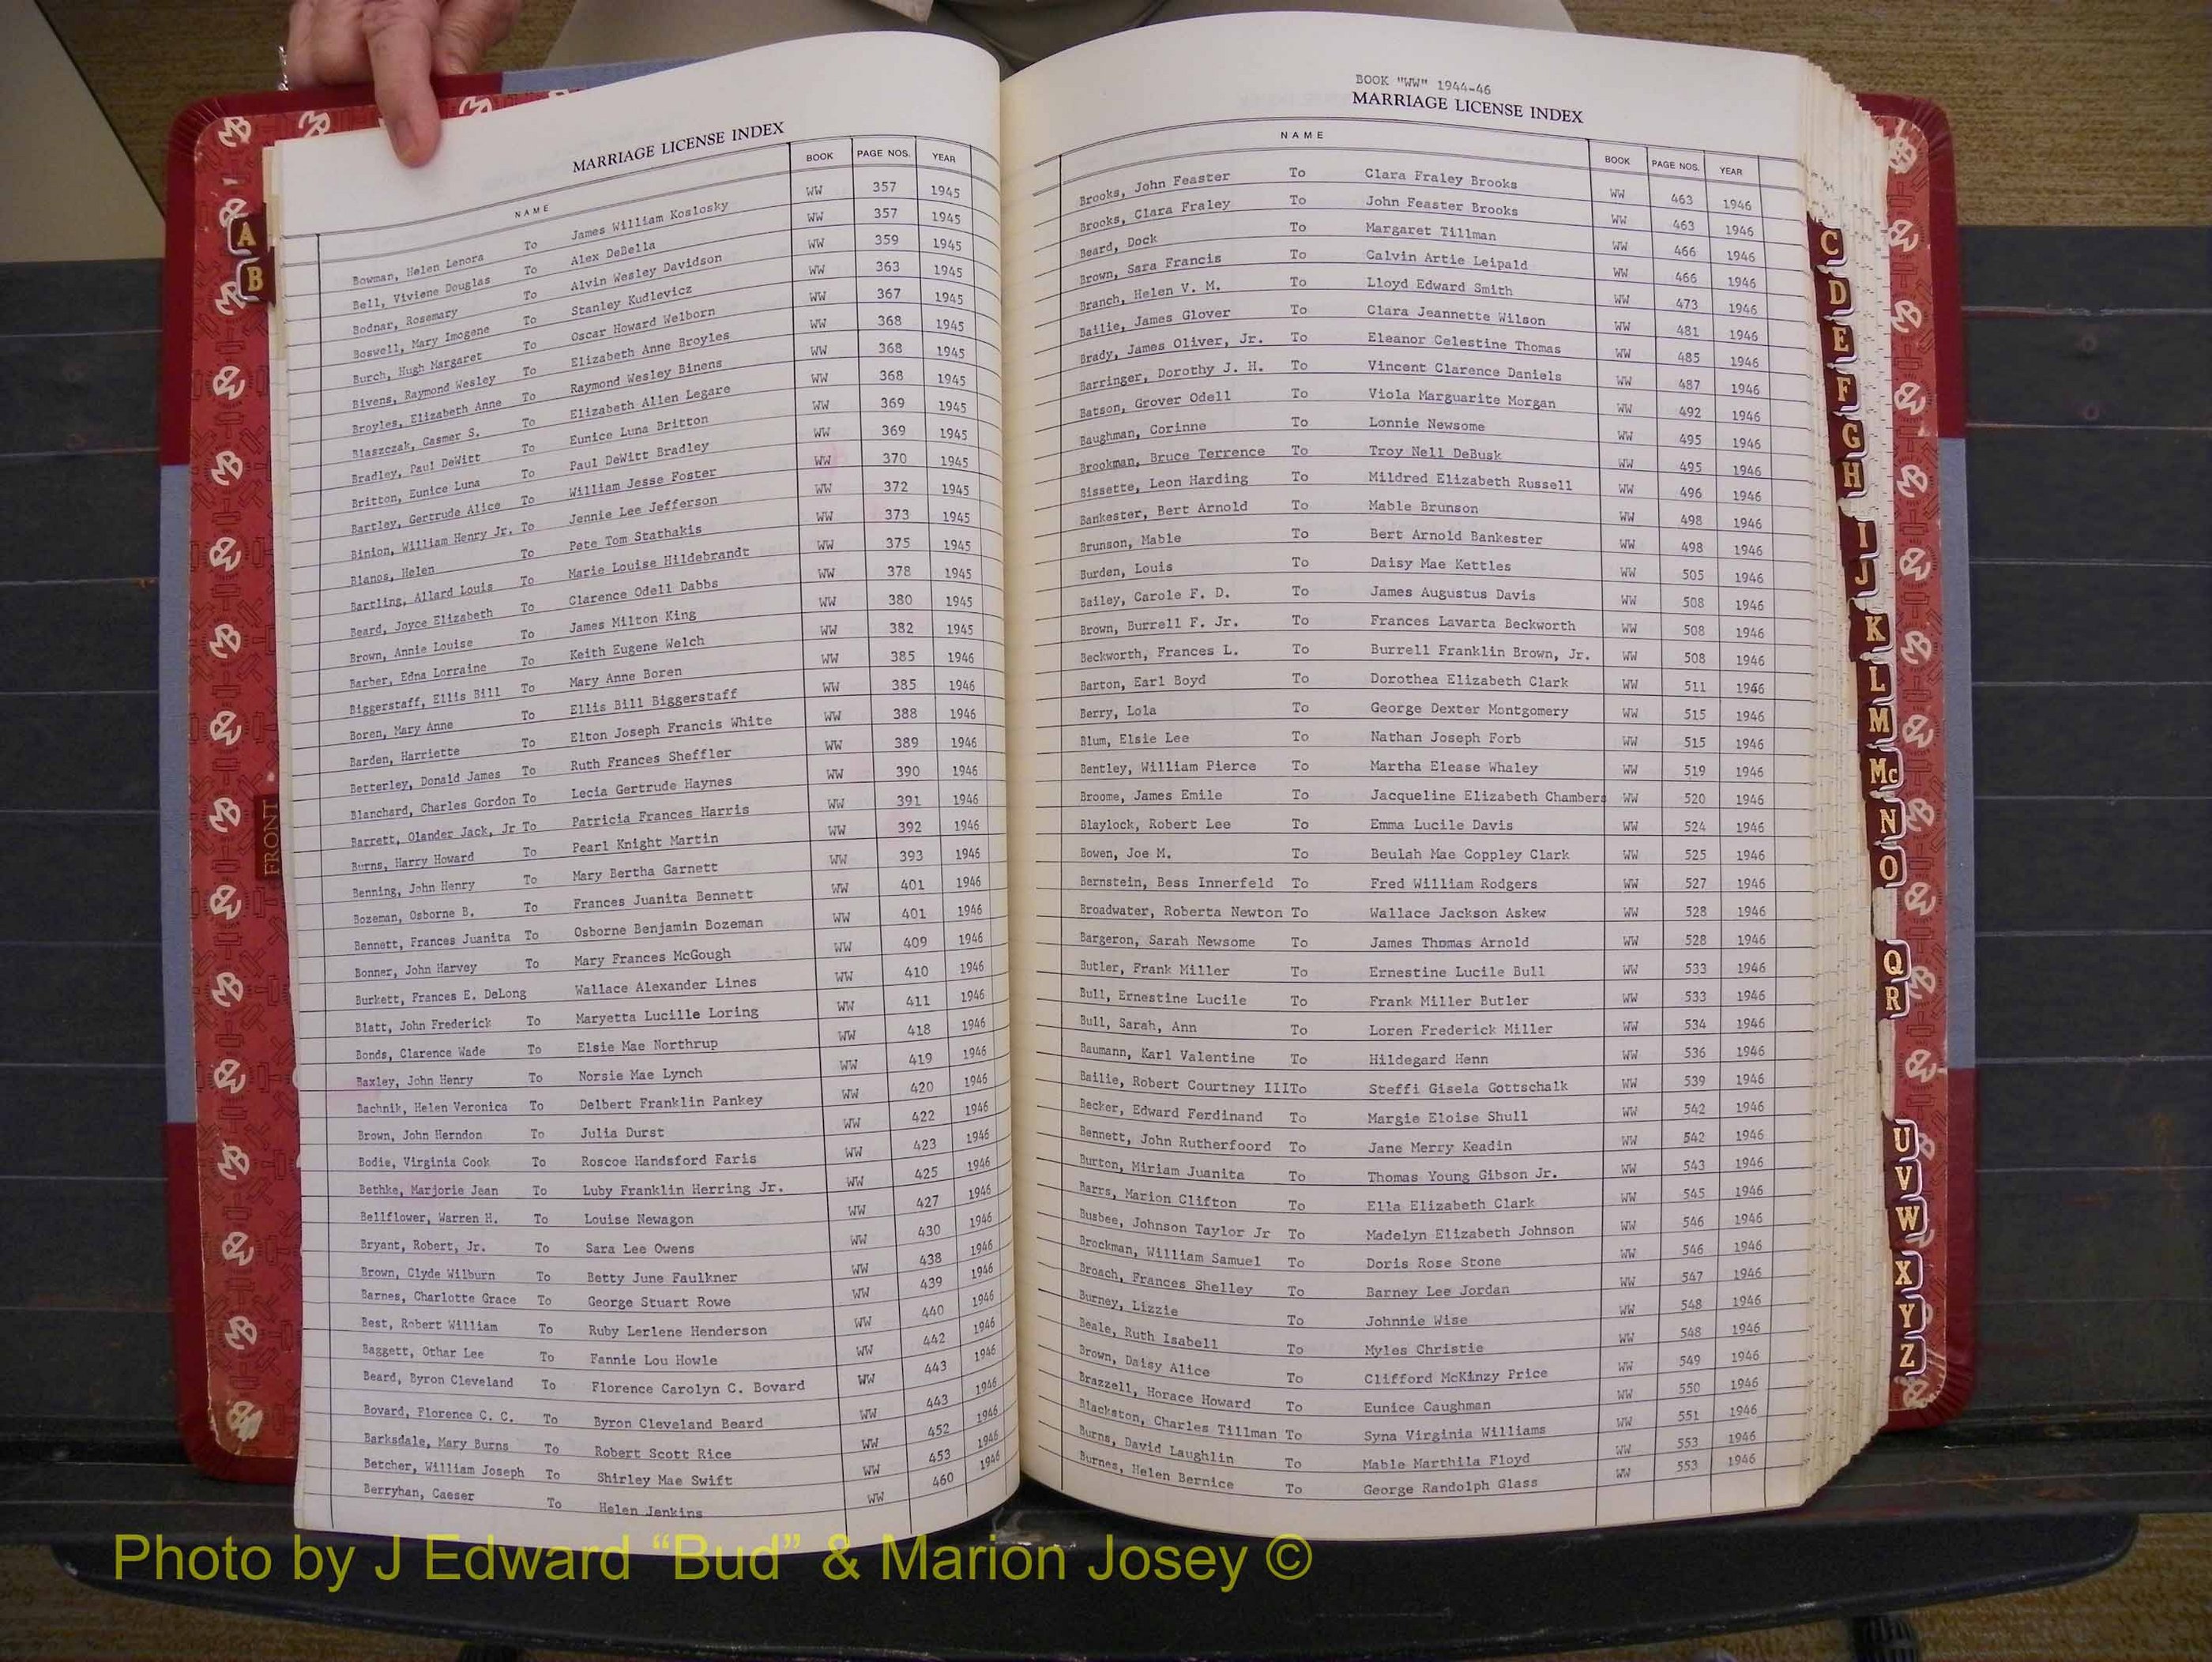 MARRIAGE LICENSE INDEX
NAME BOOK PAGE NOS. YEAR
Bowman, Helen Lenora To James William Koslosky WW 357 1945
Bell, Viviene Douglas To Alex DeBella WW 357 1945
Bodnar, Rosemary To Alvin Wesley Davidson WW 359 1945
Boswell, Mary Imogene To Stanley Kudlevicz WW 363 1945
Burch, Hugh Margaret To Oscar Howard Welborn WW 367 1945
Bivens, Raymond Wesley To Elizabeth Anne Broyles WW 368 1945
Broyles, Elizabeth Anne To Raymond Wesley Binens WW 368 1945
Blaszczak, Casmer S. To Elizabeth Allen Legare WW 368 1945
Bradley, Paul DeWitt To Eunice Luna Britton WW 369 1945
Britton, Eunice Luna To Paul DeWitt Bradley WW 369 1945
Bartley, Gertrude Alice To William Jesse Foster WW 370 1945
Binion, William Henry Jr. To Jennie Lee Jefferson WW 372 1945
Blanos, Helen To Pete Tom Stathakis WW 373 1945
Bartling, Allard Louis To Marie Louise Hildebrandt WW 375 1945
Beard, Joyce Elizabeth To Clarence Odell Dabbs WW 378 1945
Brown, Annie Louise To James Milton King WW 380 1945
Barber, Edna Lorraine To Keith Eugene Welch WW 382 1945
Biggerstaff, Ellis Bill To Mary Anne Boren WW 385 1946
Boren, Mary Anne To Ellis Bill Biggerstaff WW 385 1946
Barden, Harriette To Elton Joseph Francis White WW 388 1946
Betterley, Donald James To Ruth Frances Sheffler WW 389 1946
Blanchard, Charles Gordon To Lecia Gertrude Haynes WW 390 1946
Barrett, Olander Jack, Jr To Patricia Frances Harris WW 391 1946
Burns, Harry Howard To Pearl Knight Martin WW 392 1946
Benning, John Henry To Mary Bertha Garnett WW 393 1946
Bozeman, Osborne B. To Frances Juanita Bennett WW 401 1946
Bennett, Frances Juanita To Osborne Benjamin Bozeman WW 401 1946
Bonner, John Harvey To Mary Frances McGough WW 409 1946
Burkett, Frances E. DeLong Wallace Alexander Lines WW 410 1946
Blatt, John Frederick To Maryetta Lucille Loring WW 411 1946
Bonds, Clarence Wade To Elsie Mae Northrup WW 418 1946
Baxley, John Henry To Norsie Mae Lynch WW 419 1946
Bachnik, Helen Veronica To Delbert Franklin Pankey WW 420 1946
Brown, John Herndon To Julia Durst WW 422 1946
Bodie, Virginia Cook To Roscoe Handsford Faris WW 423 1946
Bethke, Marjorie Jean To Luby Franklin Herring Jr. WW 425 1946
Bellflower, Warren H. To Louise Newagon WW 427 1946
Bryant, Robert, Jr. To Sara Lee Owens WW 430 1946
Brown, Clyde Wilburn To Betty June Faulkner WW 438 1946
Barnes, Charlotte Grace To George Stuart Rowe WW 439 1946
Best, Robert William To Ruby Lerlene Henderson WW 440 1946
Baggett, Othar Lee To Fannie Lou Howle WW 442 1946
Beard, Byron Cleveland To Florence Carolyn C. Bovard WW 443 1946
Bovard, Florence C. C. To Byron Cleveland Beard WW 443 1946
Barksdale, Mary Burns To Robert Scott Rice WW 452 1946
Betcher, William Joseph To Shirley Mae Swift WW 453 1946
Berryhan, Caeser To Helen Jenkins WW 460 1946
A
B
FRONT
BOOK "WW" 1944-46
MARRIAGE LICENSE INDEX
NAME BOOK PAGE NOS. YEAR
Brooks, John Feaster To Clara Fraley Brooks WW 463 1946
Brooks, Clara Fraley To John Feaster Brooks WW 463 1946
Beard, Dock To Margaret Tillman WW 466 1946
Brown, Sara Francis To Calvin Artie Leipald WW 466 1946
Branch, Helen V. M. To Lloyd Edward Smith WW 473 1946
Bailie, James Glover To Clara Jeannette Wilson WW 481 1946
Brady, James Oliver, Jr. To Eleanor Celestine Thomas WW 485 1946
Barringer, Dorothy J. H. To Vincent Clarence Daniels WW 487 1946
Batson, Grover Odell To Viola Marguarite Morgan WW 492 1946
Baughman, Corinne To Lonnie Newsome WW 495 1946
Brookman, Bruce Terrence To Troy Nell DeBusk WW 495 1946
Bissette, Leon Harding To Mildred Elizabeth Russell WW 496 1946
Bankester, Bert Arnold To Mable Brunson WW 498 1946
Brunson, Mable To Bert Arnold Bankester WW 498 1946
Burden, Louis To Daisy Mae Kettles WW 505 1946
Bailey, Carole F. D. To James Augustus Davis WW 508 1946
Brown, Burrell F. Jr. To Frances Lavarta Beckworth WW 508 1946
Beckworth, Frances L. To Burrell Franklin Brown, Jr. WW 508 1946
Barton, Earl Boyd To Dorothea Elizabeth Clark WW 511 1946
Berry, Lola To George Dexter Montgomery WW 515 1946
Blum, Elsie Lee To Nathan Joseph Forb WW 515 1946
Bentley, William Pierce To Martha Elease Whaley WW 519 1946
Broome, James Emile To Jacqueline Elizabeth Chambers WW 520 1946
Blaylock, Robert Lee To Emma Lucile Davis WW 524 1946
Bowen, Joe M. To Beulah Mae Coppley Clark WW 525 1946
Bernstein, Bess Innerfeld To Fred William Rodgers WW 527 1946
Broadwater, Roberta Newton To Wallace Jackson Askew WW 528 1946
Bargeron, Sarah Newsome To James Thomas Arnold WW 528 1946
Butler, Frank Miller To Ernestine Lucile Bull WW 533 1946
Bull, Ernestine Lucile To Frank Miller Butler WW 533 1946
Bull, Sarah, Ann To Loren Frederick Miller WW 534 1946
Baumann, Karl Valentine To Hildegard Henn WW 536 1946
Bailie, Robert Courtney IIITo Steffi Gisela Gottschalk WW 539 1946
Becker, Edward Ferdinand To Margie Eloise Shull WW 542 1946
Bennett, John Rutherfoord To Jane Merry Keadin WW 542 1946
Burton, Miriam Juanita To Thomas Young Gibson Jr. WW 543 1946
Barrs, Marion Clifton To Ella Elizabeth Clark WW 545 1946
Busbee, Johnson Taylor Jr To Madelyn Elizabeth Johnson WW 546 1946
Brockman, William Samuel To Doris Rose Stone WW 546 1946
Broach, Frances Shelley To Barney Lee Jordan WW 547 1946
Burney, Lizzie To Johnnie Wise WW 548 1946
Beale, Ruth Isabell To Myles Christie WW 548 1946
Brown, Daisy Alice To Clifford McKinzy Price WW 549 1946
Brazzell, Horace Howard To Eunice Caughman WW 550 1946
Blackston, Charles Tillman To Syna Virginia Williams WW 551 1946
Burns, David Laughlin To Mable Marthila Floyd WW 553 1946
Burnes, Helen Bernice To George Randolph Glass WW 553 1946
C
D
E
F
G
H
I
J
K
L
M
Mc
N
O
Q
R
U
V
W
X
Y
Z
Photo by J Edward “Bud” & Marion Josey ©